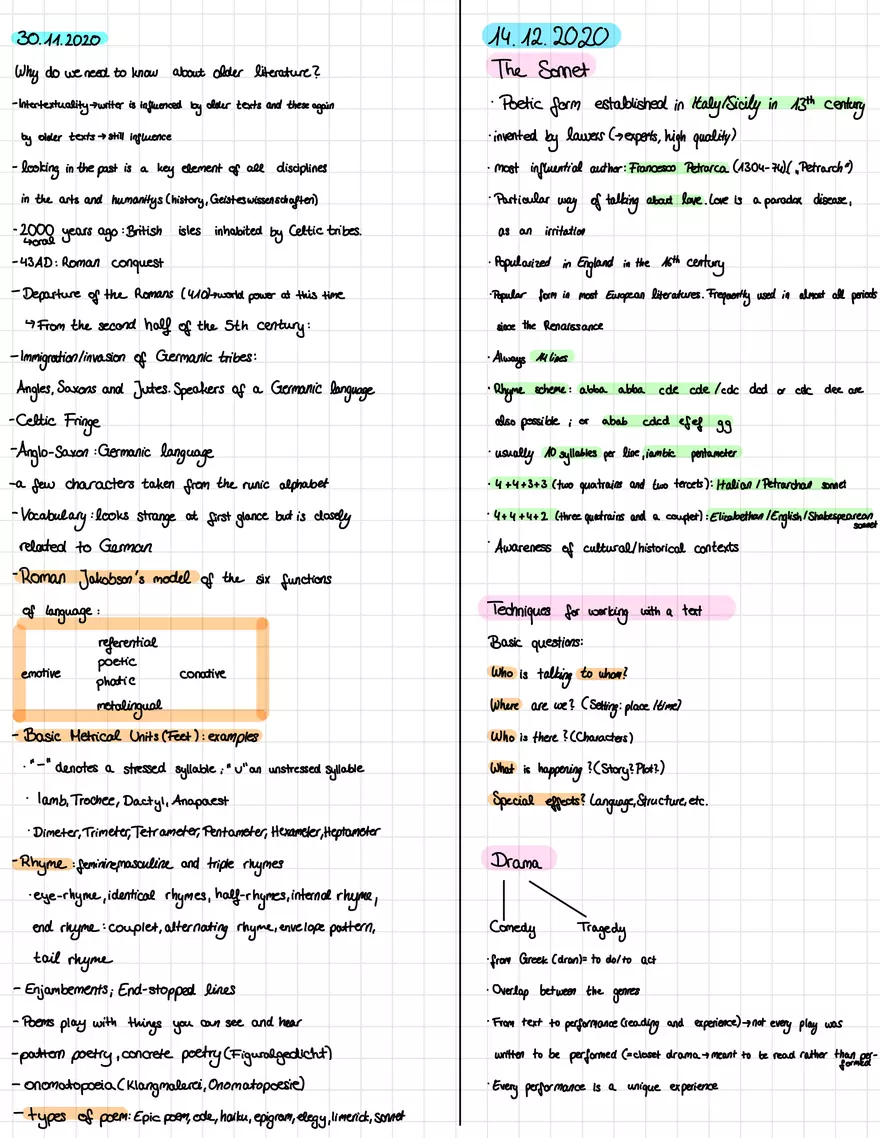 30.11.2020
Why do we need to know about older literature?
-Intertextuality→writer is influenced by older texts and these again
by older texts → still influence
- looking in the past is a key element of all disciplines
in the arts and humanitys (history, Geisteswissenschaften)
- 2000 years ago : British isles inhabited by Celtic tribes.
↳oral
-43AD: Roman conquest
- Departure of the Romans (410)→world power at this time
↳ From the second half of the 5th century:
- Immigration/invasion of Germanic tribes:
Angles, Saxons and Jutes. Speakers of a Germanic language
-Celtic Fringe
-Anglo-Saxon : Germanic language
-a few characters taken from the runic alphabet
- Vocabulary : looks strange at first glance but is closely
related to German
- Roman Jakobson's model of the six functions
of language :
referential
poetic
emotive phatic conative
metalingual
- Basic Metrical Units (Feet) : examples
· "-" denotes a stressed syllable ; "∪" an unstressed syllable
· Iamb, Trochee, Dactyl, Anapaest
· Dimeter, Trimeter, Tetrameter, Pentameter, Hexameter, Heptameter
- Rhyme : feminine,masculine and triple rhymes
· eye-rhyme, identical rhymes, half-rhymes, internal rhyme,
end rhyme : couplet, alternating rhyme, envelope pattern,
tail rhyme
- Enjambements; End-stopped lines
- Poems play with things you can see and hear
- pattern poetry, concrete poetry (Figuralgedicht)
- onomatopoeia (Klangmalerei, Onomatopoesie)
- types of poem: Epic poem, ode, haiku, epigram, elegy, limerick, sonnet
14.12.2020
The Sonnet
· Poetic form established in Italy/Sicily in 13th century
· invented by lawers (→experts, high quality)
· most influential author: Francesco Petrarca (1304-74)( „Petrarch")
· Particular way of talking about love. Love is a paradox disease,
as an irritation
· Popularized in England in the 16th century
·Popular form in most European literatures. Frequently used in almost all periods
since the Renaissance
· Always 14 lines
· Rhyme scheme: abba abba cde cde /cdc dcd or cdc dee are
also possible ; or abab cdcd efef gg
· usually 10 syllables per line, iambic pentameter
· 4+4+3+3 (two quatrains and two tercets): Italian / Petrarchan sonnet
· 4+4+4+2 (three quatrains and a couplet) : Elizabethan/English/Shakespearean
sonnet
· Awareness of cultural/historical contexts
Techniques for working with a text
Basic questions:
Who is talking to whom?
Where are we? (Setting: place /time)
Who is there ? (Characters)
What is happening ? (Story? Plot?)
Special effects? Language, Structure, etc.
Drama
Comedy Tragedy
· from Greek (dran)= to do/to act
· Overlap between the genres
· From text to performance (reading and experience)→not every play was
written to be performed (=closet drama → meant to be read rather than per-
formed
· Every performance is a unique experience